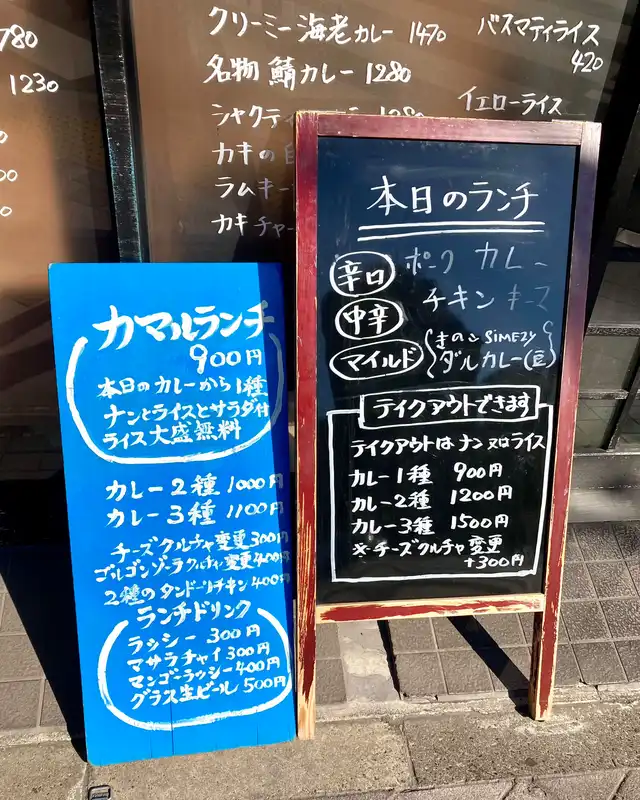 780
1230
クリーミー海老カレー 1470
名物 鯖カレー 1280
シャクティ
カキの
ラムキー
カキチャー
バスマティライス
420
イエローライス
カマルランチ
900円
本日のカレーから1種
ナンとライスとサラダ付
ライス大盛無料
カレー2種 1000円
カレー3種 1100円
チーズクルチャ変更300円
ゴルゴンゾーラクルチャ変更400円
2種のタンドーリチキン400円
ランチドリンク
ラッシー 300円
マサラチャイ300円
マンゴーラッシー400円
グラス生ビール 500円
本日のランチ
辛口 ポーク カレー
中辛 チキン キーマ
マイルド きのこSiMEZy
ダルカレー(豆)
テイクアウトできます
テイクアウトは ナン又はライス
カレー1種 900円
カレー2種 1200円
カレー3種 1500円
※チーズクルチャ変更
+300円